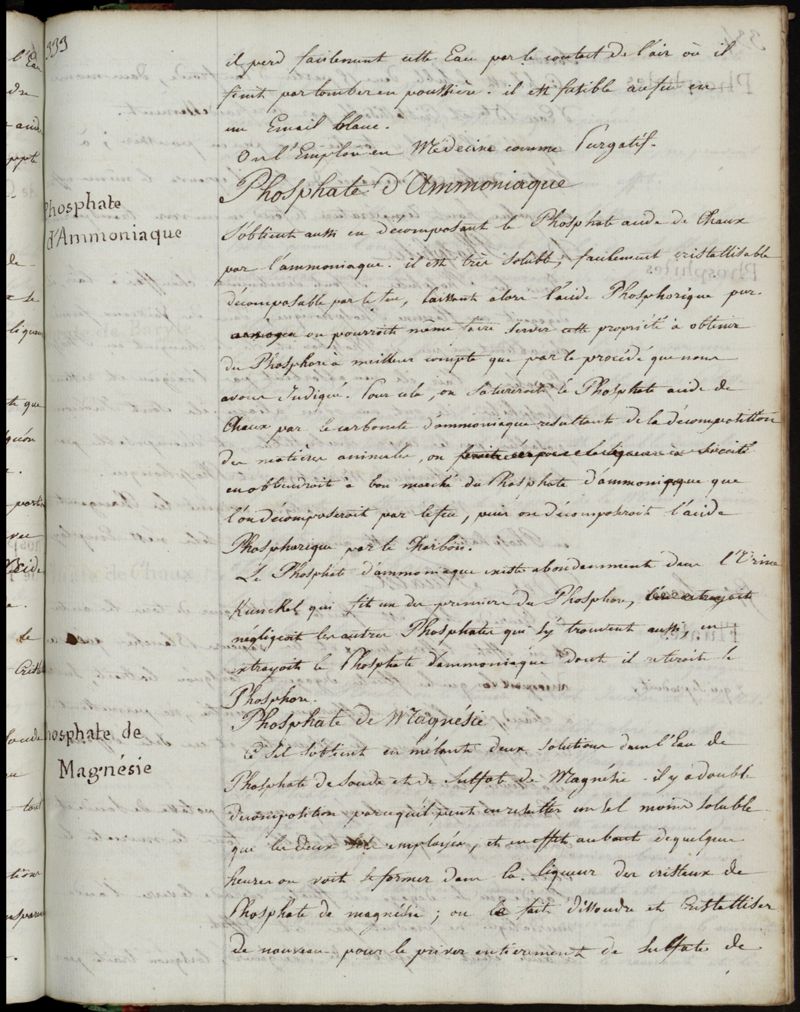 333
il perd facilement cette Eau par le contact de l'air où il
finit par tomber en poussière. il est fusible au feu en
un Email blanc.
On l'Emploie en Médecine comme Purgatif.
Phosphate d'Ammoniaque
Phosphate
d'Ammoniaque
S'obtient aussi en décomposant le Phosphate acide de Chaux
par l'ammoniaque. il est très soluble, facilement cristallisable
décomposable par le feu, laissant alors l'acide Phosphorique pur.
on pourroit même faire servir cette propriété à obtenir
du Phosphore à meilleur compte que par le procédé que nous
avons Indiqué. Pour cela, on satureroit le Phosphate acide de
Chaux par le carbonate d'ammoniaque resultant de la décomposition
des matières animales, on
en obtiendroit à bon marché du Phosphate d'ammoniaque que
l'on decomposeroit par le feu, puis on décomposeroit l'acide
Phosphorique par le Charbon.
Le Phosphate d'ammoniaque existe abondamment dans l'Urine
Kunckel qui fit un des premiers du Phosphore,
négligeoit les autres Phosphates qui s'y trouvent aussi en
extrayoit le Phosphate d'ammoniaque dont il retiroit le
Phosphore.
Phosphate de Magnésie
Phosphate de
Magnésie
Ce Sel s'obtient en mêlant deux solutions dans l'Eau de
Phosphate de soude et de Sulfate de Magnésie. il y a double
décomposition parcequ'il peut en resulter un Sel moins soluble
que les deux employés, et en effet au bout de quelques
heures on voit se former dans la liqueur des cristaux de
Phosphate de magnésie; on le fait dissoudre et Cristalliser
de nouveau pour le priver entierement de Sulfate de